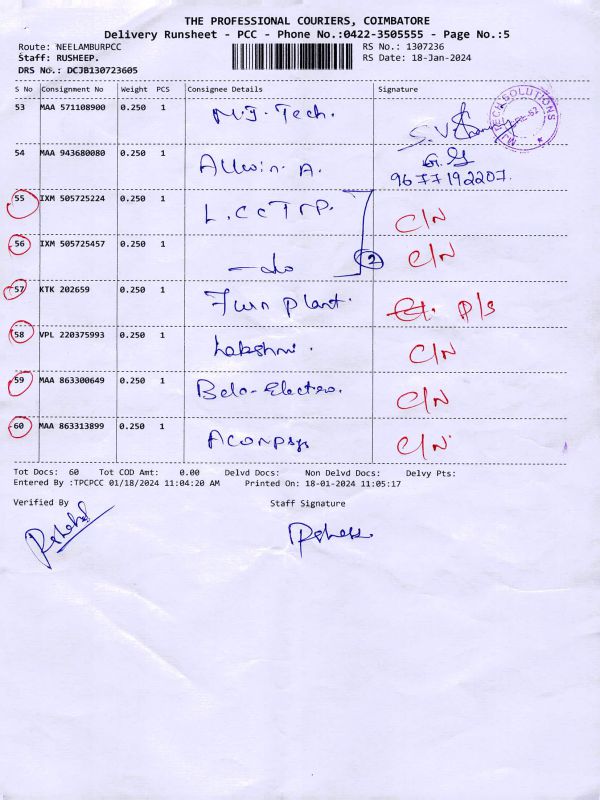 THE PROFESSIONAL COURIERS, COIMBATORE
Delivery Runsheet - PCC - Phone No.:0422-3505555 - Page No.:5
Route: NEELAMBURPCC RS No.: 1307236
Staff: RUSHEEP. RS Date: 18-Jan-2024
DRS No.: DCJB130723605
S No Consignment No Weight PCS Consignee Details Signature
53 MAA 571108900 0.250 1 M.J. Tech.
TECH SOLUTIONS
54 MAA 943680080 0.250 1 Allwin. A. 9677192207.
55 IXM 505725224 0.250 1 L.C.C C/N
56 IXM 505725457 0.250 1 -do 2 C/N
57 KTK 202659 0.250 1 Plant. P/S
58 VPL 220375993 0.250 1 Lakshmi. C/N
59 MAA 863300649 0.250 1 Electro. C/N
60 MAA 863313899 0.250 1 C/N
Tot Docs: 60 Tot COD Amt: 0.00 Delvd Docs: Non Delvd Docs: Delvy Pts:
Entered By :TPCPCC 01/18/2024 11:04:20 AM Printed On: 18-01-2024 11:05:17
Verified By Staff Signature